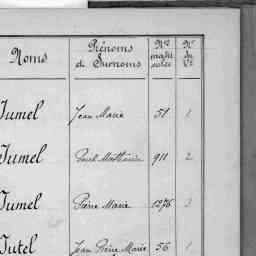 Noms Prénoms et Surnoms Nos matricules No du Vol
Jumel Jean Marie 51 1
Jumel Paul Mathurin 911 2
Jumel Pierre Marie 1276 3
Jutel Jean Pierre Marie 56 1